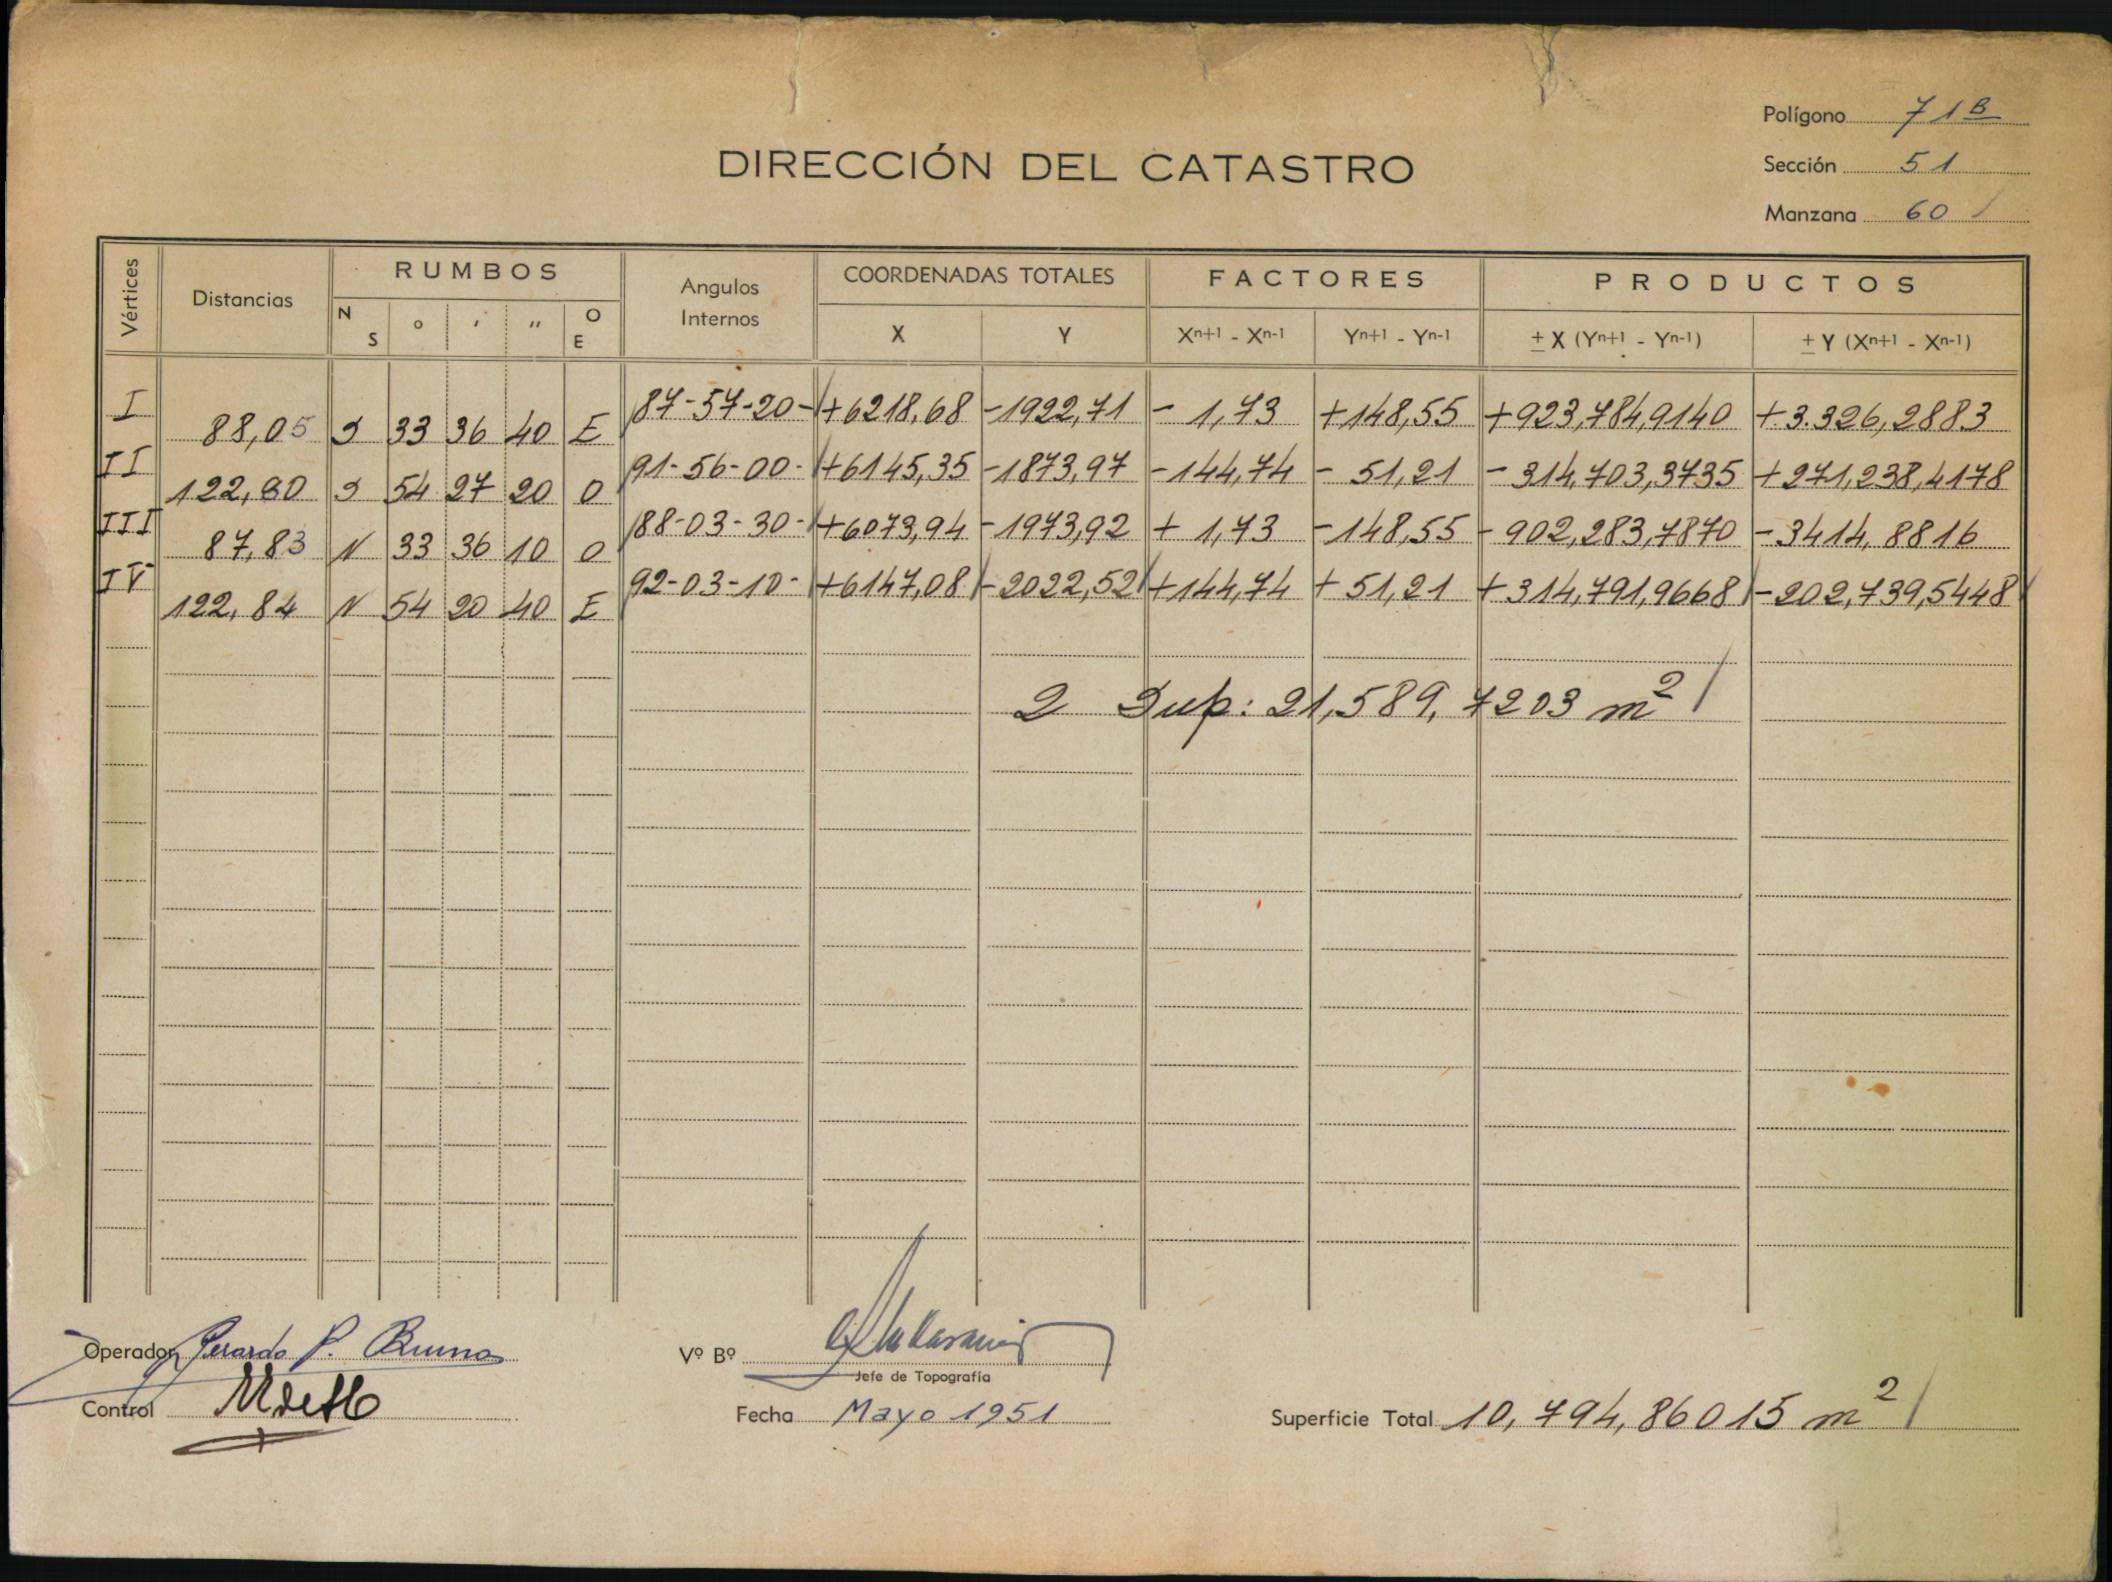 Polígono 71 B
DIRECCIÓN DEL CATASTRO
Sección 51
Manzana 60
Vértices Distancias RUMBOS Angulos Internos COORDENADAS TOTALES FACTORES PRODUCTOS
N S ° ' " O E X Y Xn+1 - Xn-1 Yn+1 - Yn-1 ± X (Yn+1 - Yn-1) ± Y (Xn+1 - Xn-1)
I 87-57-20- +6218,68 -1922,71 - 1,73 +148,55 +923,784,9140 +3.326,2883
88,05 S 33 36 40 E
II 91-56-00- +6145,35 -1873,97 -144,74 - 51,21 - 314,703,3735 +271,238,4178
122,80 S 54 27 20 O
III 88-03-30- +6073,94 -1973,92 + 1,73 -148,55 - 902,283,7870 -3414,8816
87,83 N 33 36 10 O
IV 92-03-10- +6147,08 -2022,52 +144,74 + 51,21 +314,791,9668 -202,739,5448
122,84 N 54 20 40 E
2 Sup: 21,589,7203 m2
Operador Gerardo P. Bruno
Vº Bº
Jefe de Topografía
Control
Fecha Mayo 1951
Superficie Total 10,794,86015 m2